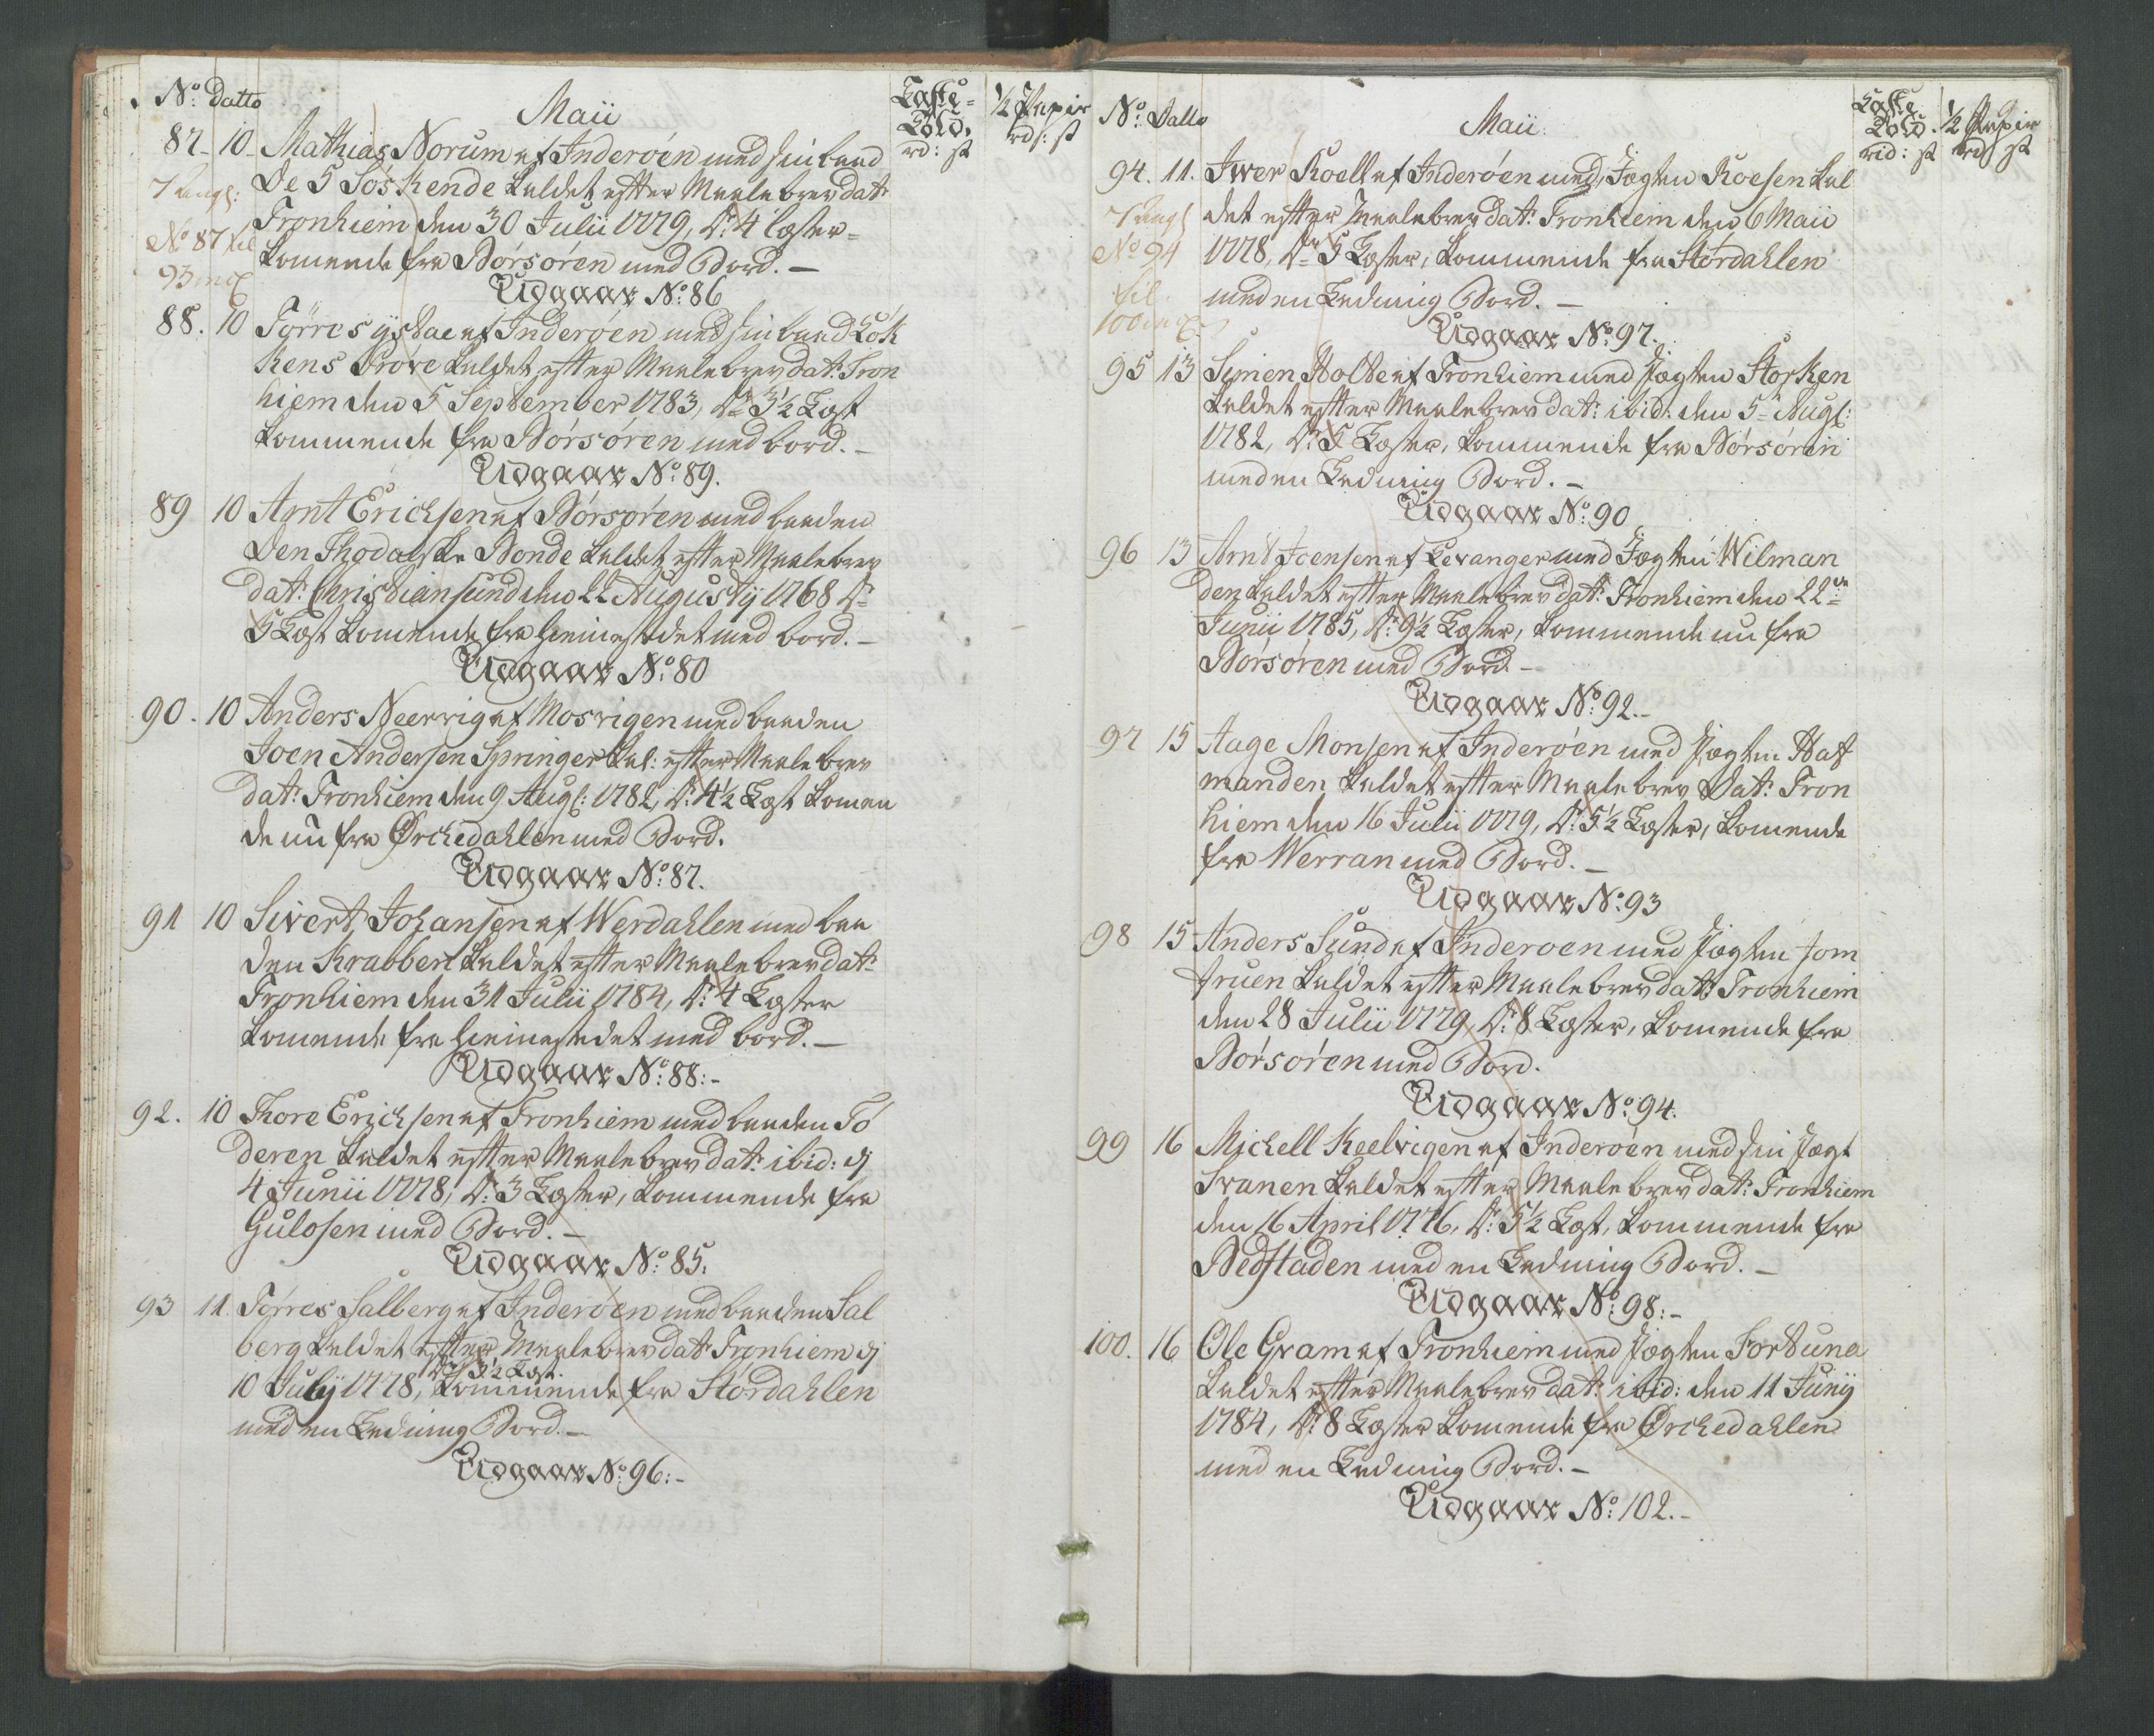 No: datto
Maii
Læste=
Told.
rd: ß
½ Papir
rd: ß
87. 10. Mathias Norum af Inderöen med sin baad
De 5 Söskende kaldet efter Maalebrev dat:
Tronhiem den 30 Julii 1779, Dr: 4 Læster-
komende fra Börsören med Bord. –
7 Angl:
No 87 til
93 incl
Udgaar No: 86
88. 10 Törres ystae af Inderöen med sin baad Lök
kens Pröve kaldet efter Maalebrev dat: Tron
hiem den 5 September 1783, Dr: 3½ Læst
kommende fra Börsören med bord. –
Udgaar No: 89.
89 10 Arnt Erichsen af Börsören med baaden
Den Thodalske Bonde kaldet efter Maalebrev
dat: Christiansund den 22 Augustij 1768 Dr:
5 Læst komende fra Hiemestedet med bord. –
Udgaar No: 80
90. 10 Anders Neervig af Mosvigen med baaden
Joen Andersen Springer kal: efter Maalebrev
dat: Tronhiem den 9 Aug: 1782, Dr: 4½ Læst komen
de nu fra Örchedahlen med Bord.
Udgaar No: 87.
91 10 Sivert Johansen af Werdahlen med baa
den Krabben kaldet efter Maalebrev dat:
Tronhiem den 31 Julii 1784, Dr: 4 Læster
komende fra Hiemestedet med bord. –
Udgaar No: 88:-
92. 10 Thore Erichsen af Tronhiem med baaden Fö
deren kaldet efter Maalebrev dat: ibid: dj
4 Junii 1778, Dr: 3 Læster, kommende fra
Gulosen med Bord. –
Udgaar No: 85.
93 11. Törres Salberg af Inderöen med baaden Sal
berg kaldet efter Maalebrev dat: Tronhiem dj
Dr: 3½ Læst.
10 Julij 1778, kommende fra Stördahlen
med en Ladning Bord. –
Udgaar No: 96:-
No: Datto
Maii.
Læste
Told.
rd: ß
½ Papir
rd ß
94. 11. Iwer Koell af Inderöen med Jægten Roesen kal
det efter Maalebrev dat: Tronhiem den 6 Maii
1778, Dr: 5 Læster, kommende fra Stördahlen
med en Ladning Bord. –
7 Angl
No 94
til
100 incl
Udgaar No: 97.
95 13 Simen Holte af Tronhiem med Jægten Storken
kaldet efter Maalebrev dat: ibid: den 5te Aug:
1782, Dr: 5 Læster, kommende fra Börsören
med en Ladning Bord. –
Udgaar No: 90
96 13 Arnt Joensen af Levanger med Jægten Wilman
den kaldet efter Maalebrev dat: Tronhiem den 22de
Junii 1785, Dr: 9½ Læster, kommende nu fra
Börsören med Bord –
Udgaar No: 92.-
97 15 Aage Monsen af Inderöen med Jægten Haf
manden kaldet efter Maalebrev Dat: Tron
hiem den 16 Julii 1779, Dr: 5½ Læster, komende
fra Werran med Bord. –
Udgaar No: 93
98 15 Anders Sund af Inderoen med Jægten Jom
fruen kaldet efter Maalebrev dat: Tronhiem
den 28 Julii 1779, Dr: 8 Læster, komende fra
Börsören med Bord.
Udgaar No: 94.
99 16 Michell Keelvigen af Inderöen med sin Jægt
Svanen kaldet efter Maalebrev dat: Tronhiem
den 16 April 1776, Dr: 5½ Læst, kommende fra
Bedstaden med en Ladning Bord. –
Udgaar No: 98:-
100. 16 Ole Gram af Tronhiem med Jægten Fortuna
kaldet efter Maalebrev dat: ibid: den 11 Junij
1784, Dr: 8 Læster komende fra Örchedahlen
med en Ladning Bord. –
Udgaar No: 102.-